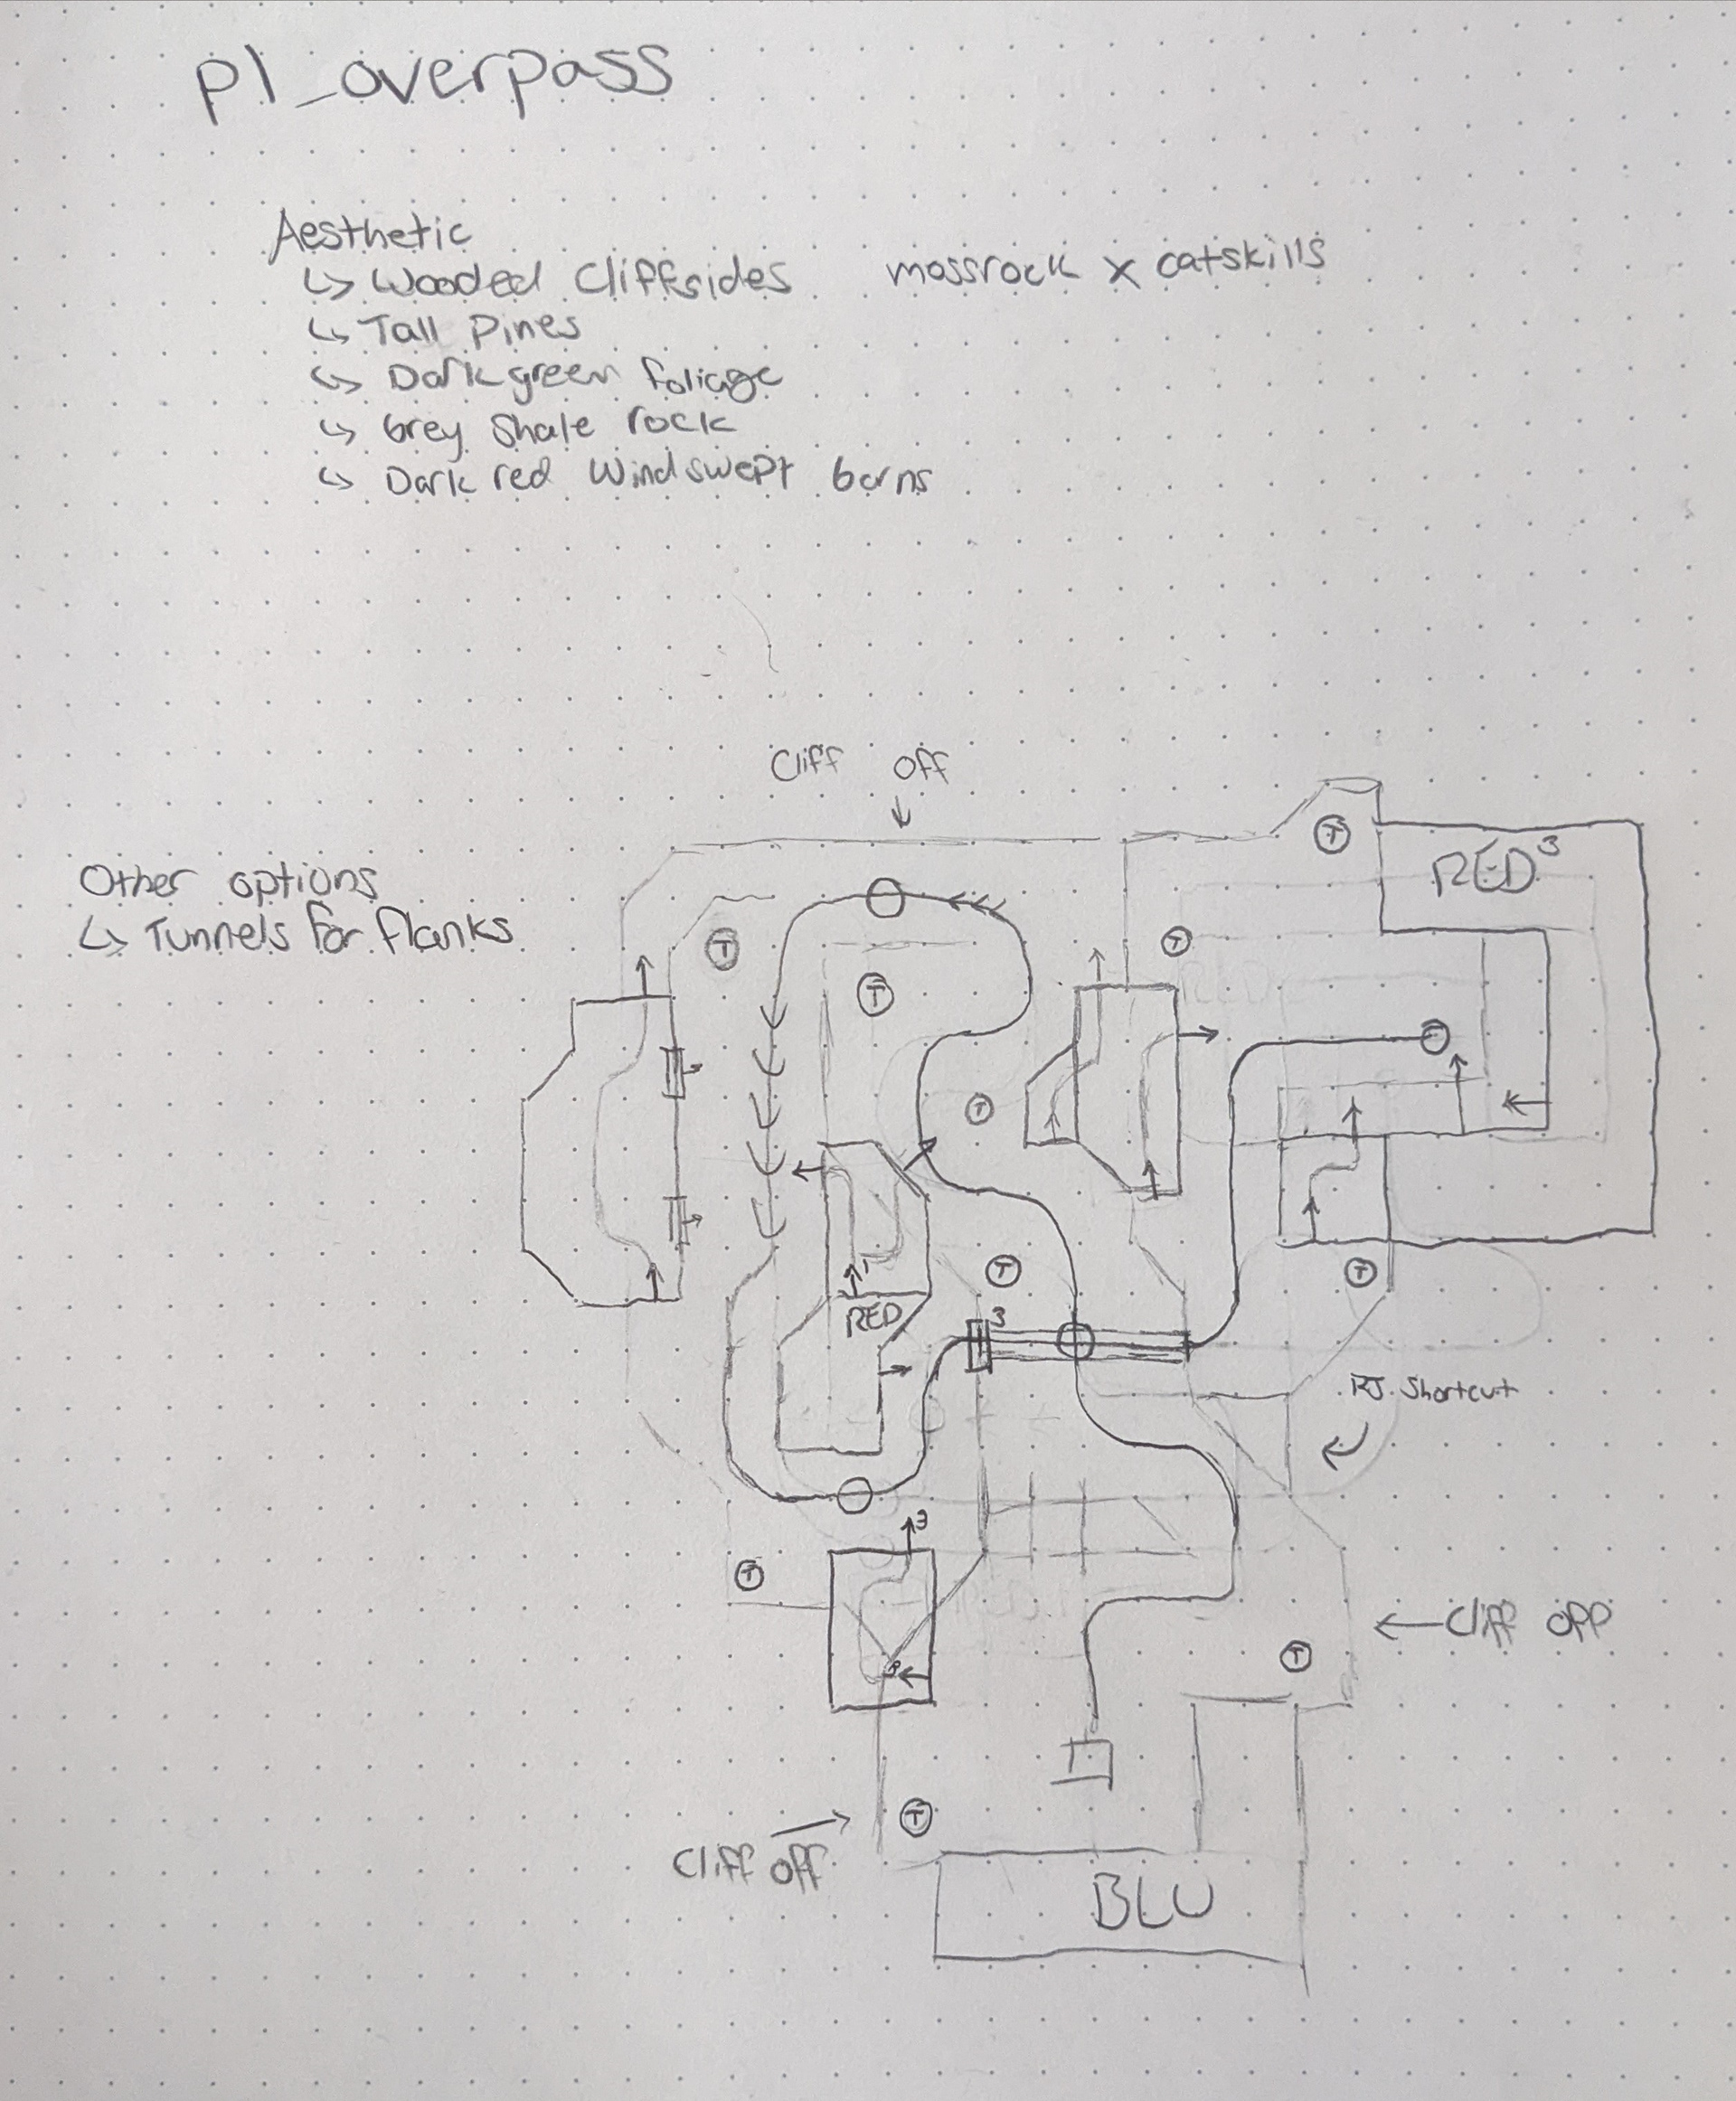 pl_overpass
Aesthetic
↳ Wooded Cliffsides
mossrock x catskills
↳ Tall Pines
↳ Dark green foliage
↳ Grey Shale rock
↳ Dark red Windswept barns
Cliff off
Other options
↳ Tunnels for flanks
T
RED 3
T
T
T
T
T
T
1
RED
3
RJ Shortcut
3
T
3
Cliff off
T
T
Cliff off
BLU